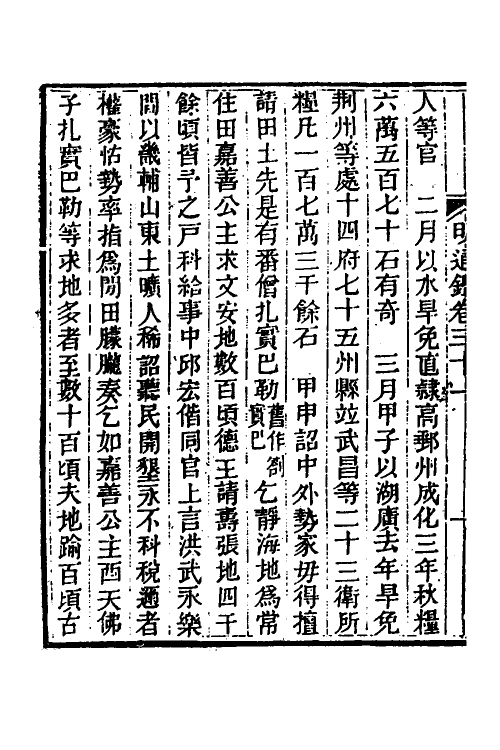 明通鑑卷三十一　一
人等官　二月以水旱免直隸高郵州成化三年秋糧
六萬五百七十石有奇　三月甲子以湖廣去年旱免
荆州等處十四府七十五州縣竝武昌等二十三衛所
糧凡一百七萬三千餘石　甲申詔中外勢家毋得擅
請田土先是有番僧扎實巴勒舊作劄實巴乞靜海地爲常
住田嘉善公主求文安地數百頃德王請壽張地四千
餘頃皆予之戸科給事中邱宏偕同官上言洪武永樂
間以畿輔山東土曠人稀詔聽民開墾永不科稅邇者
權豪怙勢率指爲閒田朦朧奏乞如嘉善公主西天佛
子扎實巴勒等求地多者至數十百頃夫地踰百頃古